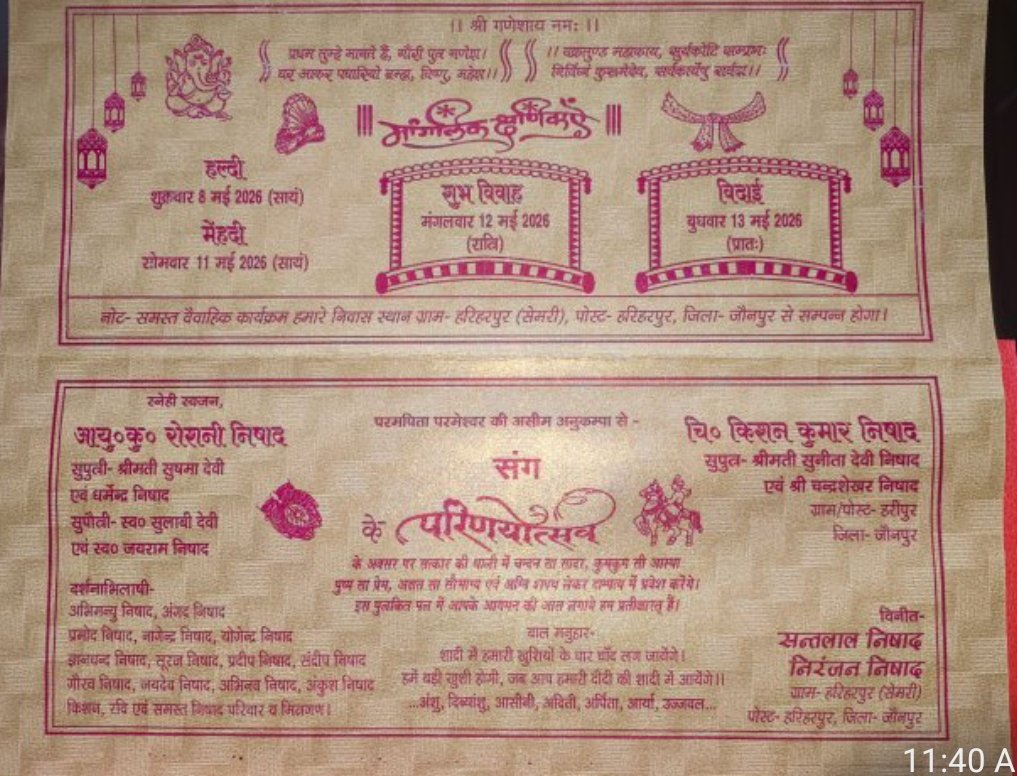 ।। श्री गणेशाय नमः ।।
प्रथम तुम्हे मानते हैं, गौरी पुत्र गणेश।
घर आकर पधारियो ब्रम्हा, विष्णु, महेश।।
।। वक्रतुण्ड महाकाय, सुर्यकोटि समप्रभः
निर्विघ्नं कुरूमेदेव, सर्वकार्येषु सर्वदा।।
मांगलिक क्षणिकाएँ
हल्दी
शुक्रवार 8 मई 2026 (सायं)
मेंहदी
सोमवार 11 मई 2026 (सायं)
शुभ विवाह
मंगलवार 12 मई 2026
(रात्रि)
विदाई
बुधवार 13 मई 2026
(प्रातः)
नोट- समस्त वैवाहिक कार्यक्रम हमारे निवास स्थान ग्राम- हरिहरपुर (सेमरी), पोस्ट- हरिहरपुर, जिला- जौनपुर से सम्पन्न होगा।
स्नेही स्वजन,
परमपिता परमेश्वर की असीम अनुकम्पा से -
आयु०कु० रोशनी निषाद
सुपुत्री- श्रीमती सुषमा देवी
एवं धर्मेन्द्र निषाद
सुपौत्री- स्व० सुलाबी देवी
एवं स्व० जयराम निषाद
संग
चि० किशन कुमार निषाद
सुपुत्र- श्रीमती सुनीता देवी निषाद
एवं श्री चन्द्रशेखर निषाद
ग्राम/पोस्ट- हरीपुर
जिला- जौनपुर
के परिणयोत्सव
के अवसर पर सत्कार की थाली में चन्दन सा सादर, कुमकुम सी आस्था
पुष्प सा प्रेम, अक्षत सा सौभाग्य एवं अग्नि शपथ लेकर दाम्पत्य में प्रवेश करेंगे।
इस पुलकित पल में आपके आगमन की आस लगाये हम प्रतीक्षारत् हैं।
दर्शनाभिलाषी-
अभिमन्यु निषाद, अंगद निषाद
प्रमोद निषाद, नागेन्द्र निषाद, योगेन्द्र निषाद
ज्ञानचन्द निषाद, सूरज निषाद, प्रदीप निषाद, संदीप निषाद
गौरव निषाद, जयदेव निषाद, अभिनव निषाद, अंकुश निषाद
किशन, रवि एवं समस्त निषाद परिवार व मित्रगण।
बाल मनुहार-
शादी में हमारी खुशियों के चार चाँद लग जायेंगे।
हमें बड़ी खुशी होगी, जब आप हमारी दीदी की शादी में आयेंगे।।
...अंशु, दिव्यांशु, आसीनी, अदिती, अर्पिता, आर्या, उज्जवल...
विनीत-
सन्तलाल निषाद
निरंजन निषाद
ग्राम- हरिहरपुर (सेमरी)
पोस्ट- हरिहरपुर, जिला- जौनपुर
11:40 A